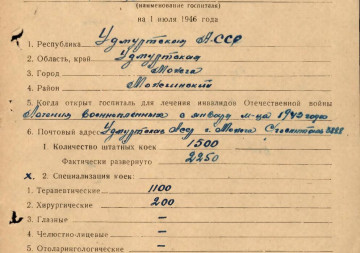 (наименование госпиталя)
на 1 июля 1946 года
1. Республика Удмуртская АССР
2. Область, край Удмуртская
3. Город Можга
4. Район Можгинский
5. Когда открыт госпиталь для лечения инвалидов Отечественной войны
Лечения военнопленных с января м-ца 1945 года
6. Почтовый адрес Удмуртская АССР г. Можга С/госпиталь 3888
1. Количество штатных коек 1500
Фактически развернуто 2250
х. 2. Специализация коек:
1. Терапевтические 1100
2. Хирургические 200
3. Глазные —
4. Челюстно-лицевые —
5. Отоларингологические —